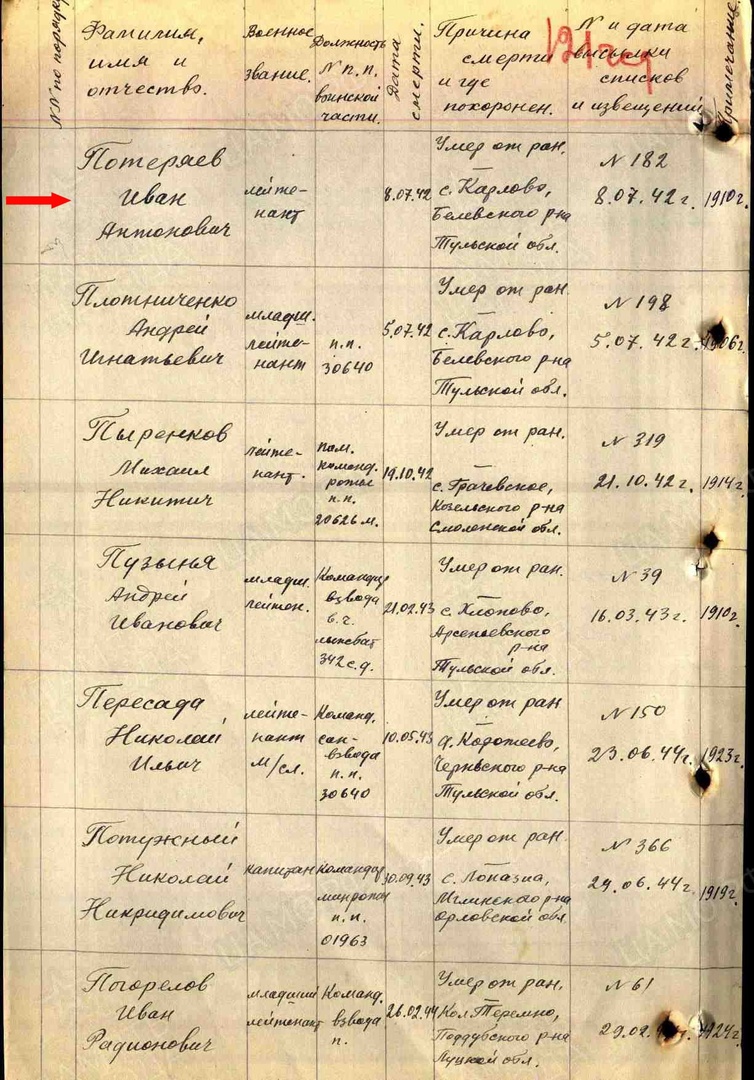 NN по порядку
Фамилия,
имя и
отчество.
Военное
звание.
Должность
N п.п.
воинской
части.
Дата
смерти.
Причина
смерти
и где
похоронен.
N и дата
высылки
списков
и извещений
Примечание
Потеряев
Иван
Антонович
лейте-
нант
8.07.42
Умер от ран.
с. Карлово,
Белевского р-на
Тульской обл.
N 182
8.07.42 г.
1910г.
Плотниченко
Андрей
Игнатьевич
младш.
лейте-
нант
п.п.
30640
5.07.42
Умер от ран.
с. Карлово,
Белевского р-на
Тульской обл.
N 198
5.07.42 г.
1906г.
Пыренков
Михаил
Никитич
лейте-
нант.
пом.
команд.
роты
п.п.
20626 м.
19.10.42
Умер от ран.
с. Грачевское,
Козельского р-на
Смоленской обл.
N 319
21.10.42 г.
1914г.
Пузынья
Андрей
Иванович
младш.
лейтен.
Командир
взвода
в.ч.
лыжбат
342 с.д.
21.02.43
Умер от ран.
с. Хлопово,
Арсеньевского
р-на
Тульской обл.
N 39
16.03.43 г.
1910г.
Пересада
Николай
Ильич
лейте-
нант
м/сл.
Команд.
сан-
взвода
п.п.
30640
10.05.43
Умер от ран
Черньского р-на
Тульской обл.
N 150
23.06.44г.
1923г.
Потужный
Николай
Никридимович
капитан
Командир
минроты
п.п.
01963
30.09.43
Умер от ран.
с. Лопазна,
Мглинского р-на
Орловской обл.
N 366
29.06.44г.
1919г.
Погорелов
Иван
Радионович
младший
лейтенант
Команд.
взвода
п.
26.02.44
Умер от ран,
Кол. Теремно,
Поддубского р-на
Луцкой обл.
N 61
29.02.
1924г.